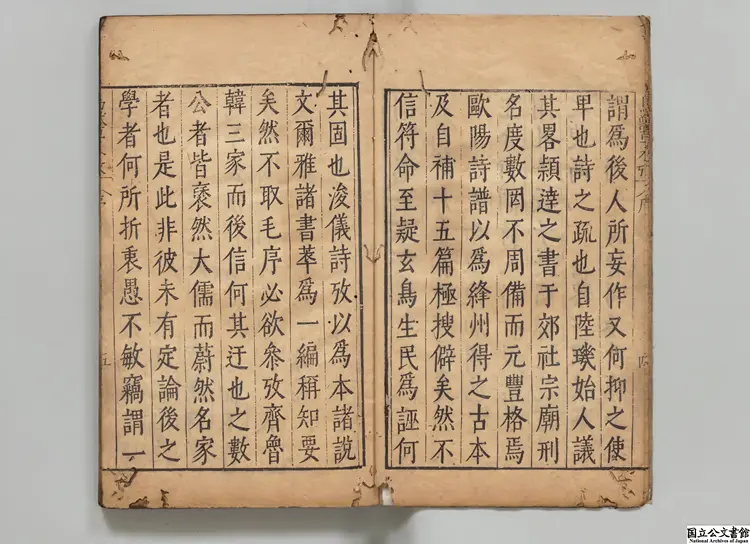 謂爲後人所妄作又何抑之使
卑也詩之疏也自陸璣始人議
其畧頴逹之書于郊社宗廟刑
名度數罔不周備而元豐格焉
歐陽詩譜以爲絳州得之古本
及自補十五篇極搜僻矣然不
信符命至疑玄鳥生民爲誣何
其固也浚儀詩攷以爲本諸說
文爾雅諸書萃爲一編稱知要
矣然不取毛序必欲叅攷齊魯
韓三家而後信何其迂也之數
公者皆裒然大儒而蔚然名家
者也是此非彼未有定論後之
學者何所折衷愚不敏竊謂一
五
国立公文書館
National Archives of Japan